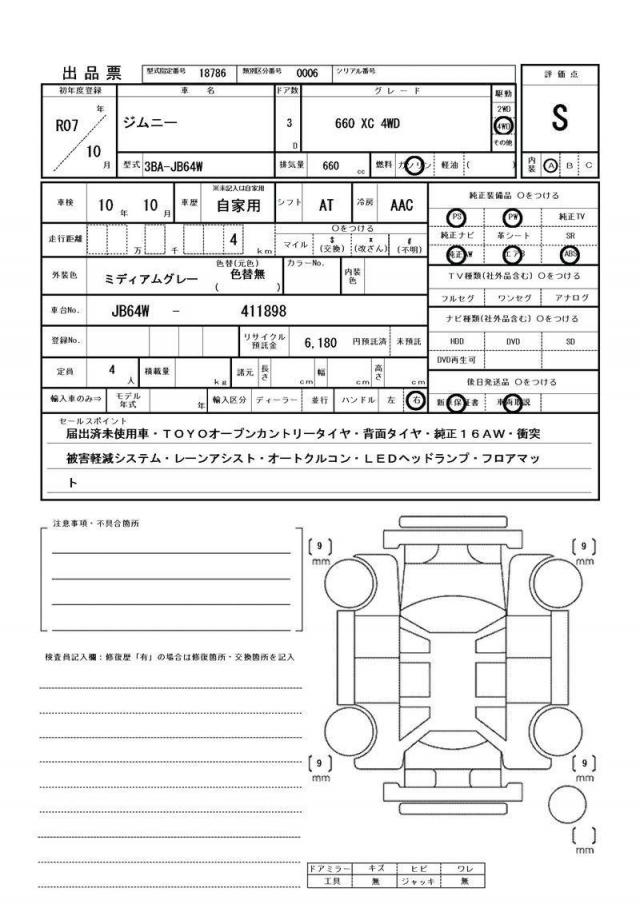 出品票 型式指定番号 18786 類別区分番号 0006 シリアル番号
初年度登録 車名 ドア数 グレード 駆動 評価点
R07 年 10 月 ジムニー 3 D 660 XC 4WD 2WD 4WD その他 S
型式 3BA-JB64W 排気量 660 cc 燃料 ガソリン 軽油 ( ) 内装 A B C
車検 10 年 10 月 車歴 ※未記入は自家用 自家用 シフト AT 冷房 AAC
走行距離 万 千 4 km 〇をつける マイル $ (交換) x (改ざん) # (不明)
外装色 ミディアムグレー 色替(元色) 色替無 ( ) カラーNo. 内装色
車台No. JB64W - 411898
登録No. リサイクル預託金 6,180 円預託済 未預託
定員 4 人 積載量 kg 諸元 長さ cm 幅 cm 高さ cm
輸入車のみ⇒ モデル年式 年 輸入区分 ディーラー 並行 ハンドル 左 右
純正装備品 〇をつける
PS PW 純正TV
純正ナビ 革シート SR
純正AW エアB ABS
TV種類(社外品含む) 〇をつける
フルセグ ワンセグ アナログ
ナビ種類(社外品含む) 〇をつける
HDD DVD SD
DVD再生可
後日発送品 〇をつける
新車保証書 車両取説
セールスポイント
届出済未使用車・TOYOオープンカントリータイヤ・背面タイヤ・純正16AW・衝突
被害軽減システム・レーンアシスト・オートクルコン・LEDヘッドランプ・フロアマッ
ト
注意事項・不具合箇所
検査員記入欄：修復歴「有」の場合は修復箇所・交換箇所を記入
[ 9 ] mm [ 9 ] mm
[ 9 ] mm [ 9 ] mm
[ ] mm
ドアミラー キズ ヒビ ワレ
工具 無 ジャッキ 無